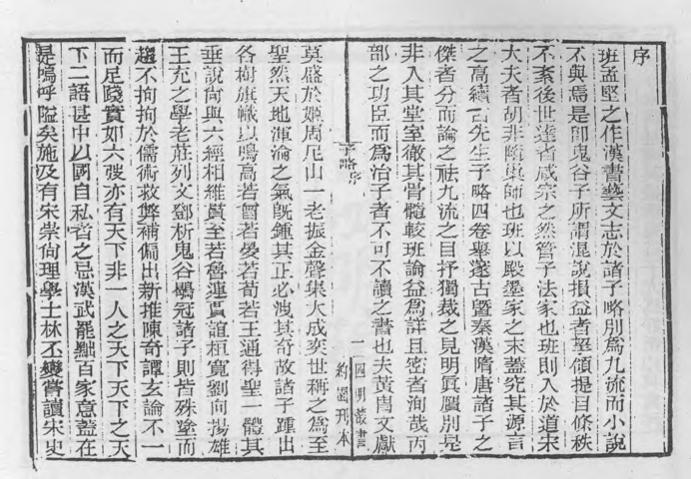 序
班孟堅之作漢書藝文志於諸子略別爲九流而小說
不與焉是卽鬼谷子所謂混說損益者挈領提目條秩
不紊後世達者咸宗之然管子法家也班則入於道宋
大夫者胡非隨巢師也班以殿墨家之末蓋究其源言
之高續古先生子略四卷舉邃古曁秦漢隋唐諸子之
傑者分而論之祛九流之目抒獨裁之見明眞贗別是
非入其堂室徹其骨髓較班論益爲詳且密洵哉丙
部之功臣而爲治子者不可不讀之書也夫黃冑文獻
子略序
一
四明叢書
約園刊本
莫盛於姬周尼山一老振金聲集大成奕世稱之爲至
聖然天地渾淪之氣旣鍾其正必洩其奇故諸子踵出
各樹旗幟以鳴高若曾若晏若荀若王通得聖一體其
垂說尙與六經相維冀至若魯連賈誼桓寬劉向揚雄
王充之學老莊列文鄧析鬼谷鶡冠諸子則皆殊塗而
趨不拘拘於儒術救弊補偏出新推陳奇譚玄論不一
而足踐實如六弢亦有天下非一人之天下天下之天
下二語甚中以國自私者之忌漢武罷黜百家意蓋在
是嗚呼隘矣施及有宋崇尙理學士林丕變嘗讀宋史